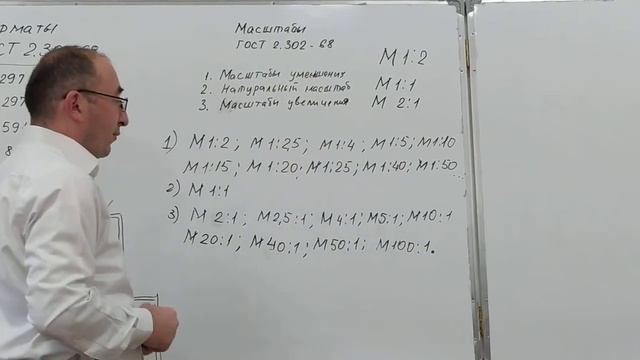 РМАТЫ
СТ 2.30 68
297
297
59
8
Масштабы
ГОСТ 2.302-68
М 1:2
1. Масштабы уменьшения
2. Натуральный масштаб М 1:1
3. Масштабы увеличения М 2:1
1) М 1:2; М 1:2,5; М 1:4; М 1:5; М 1:10
М 1:15; М 1:20; М 1:25; М 1:40; М 1:50
2) М 1:1
3) М 2:1; М 2,5:1; М 4:1; М 5:1; М 10:1
М 20:1; М 40:1; М 50:1; М 100:1.